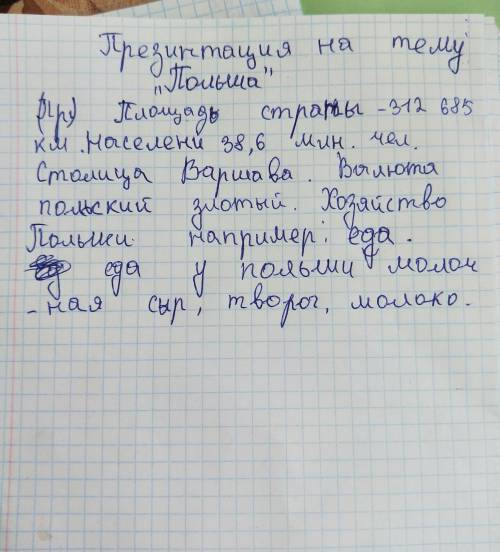 Презинтация на тему
"Польша"
(Пр) Площадь страны - 312 685
км. Населени 38,6 млн. чел.
Столица Варшава. Валюта
польский злотый. Хозяйство
Польши например: еда.
еда у польши молоч
-ная сыр, творог, молоко.